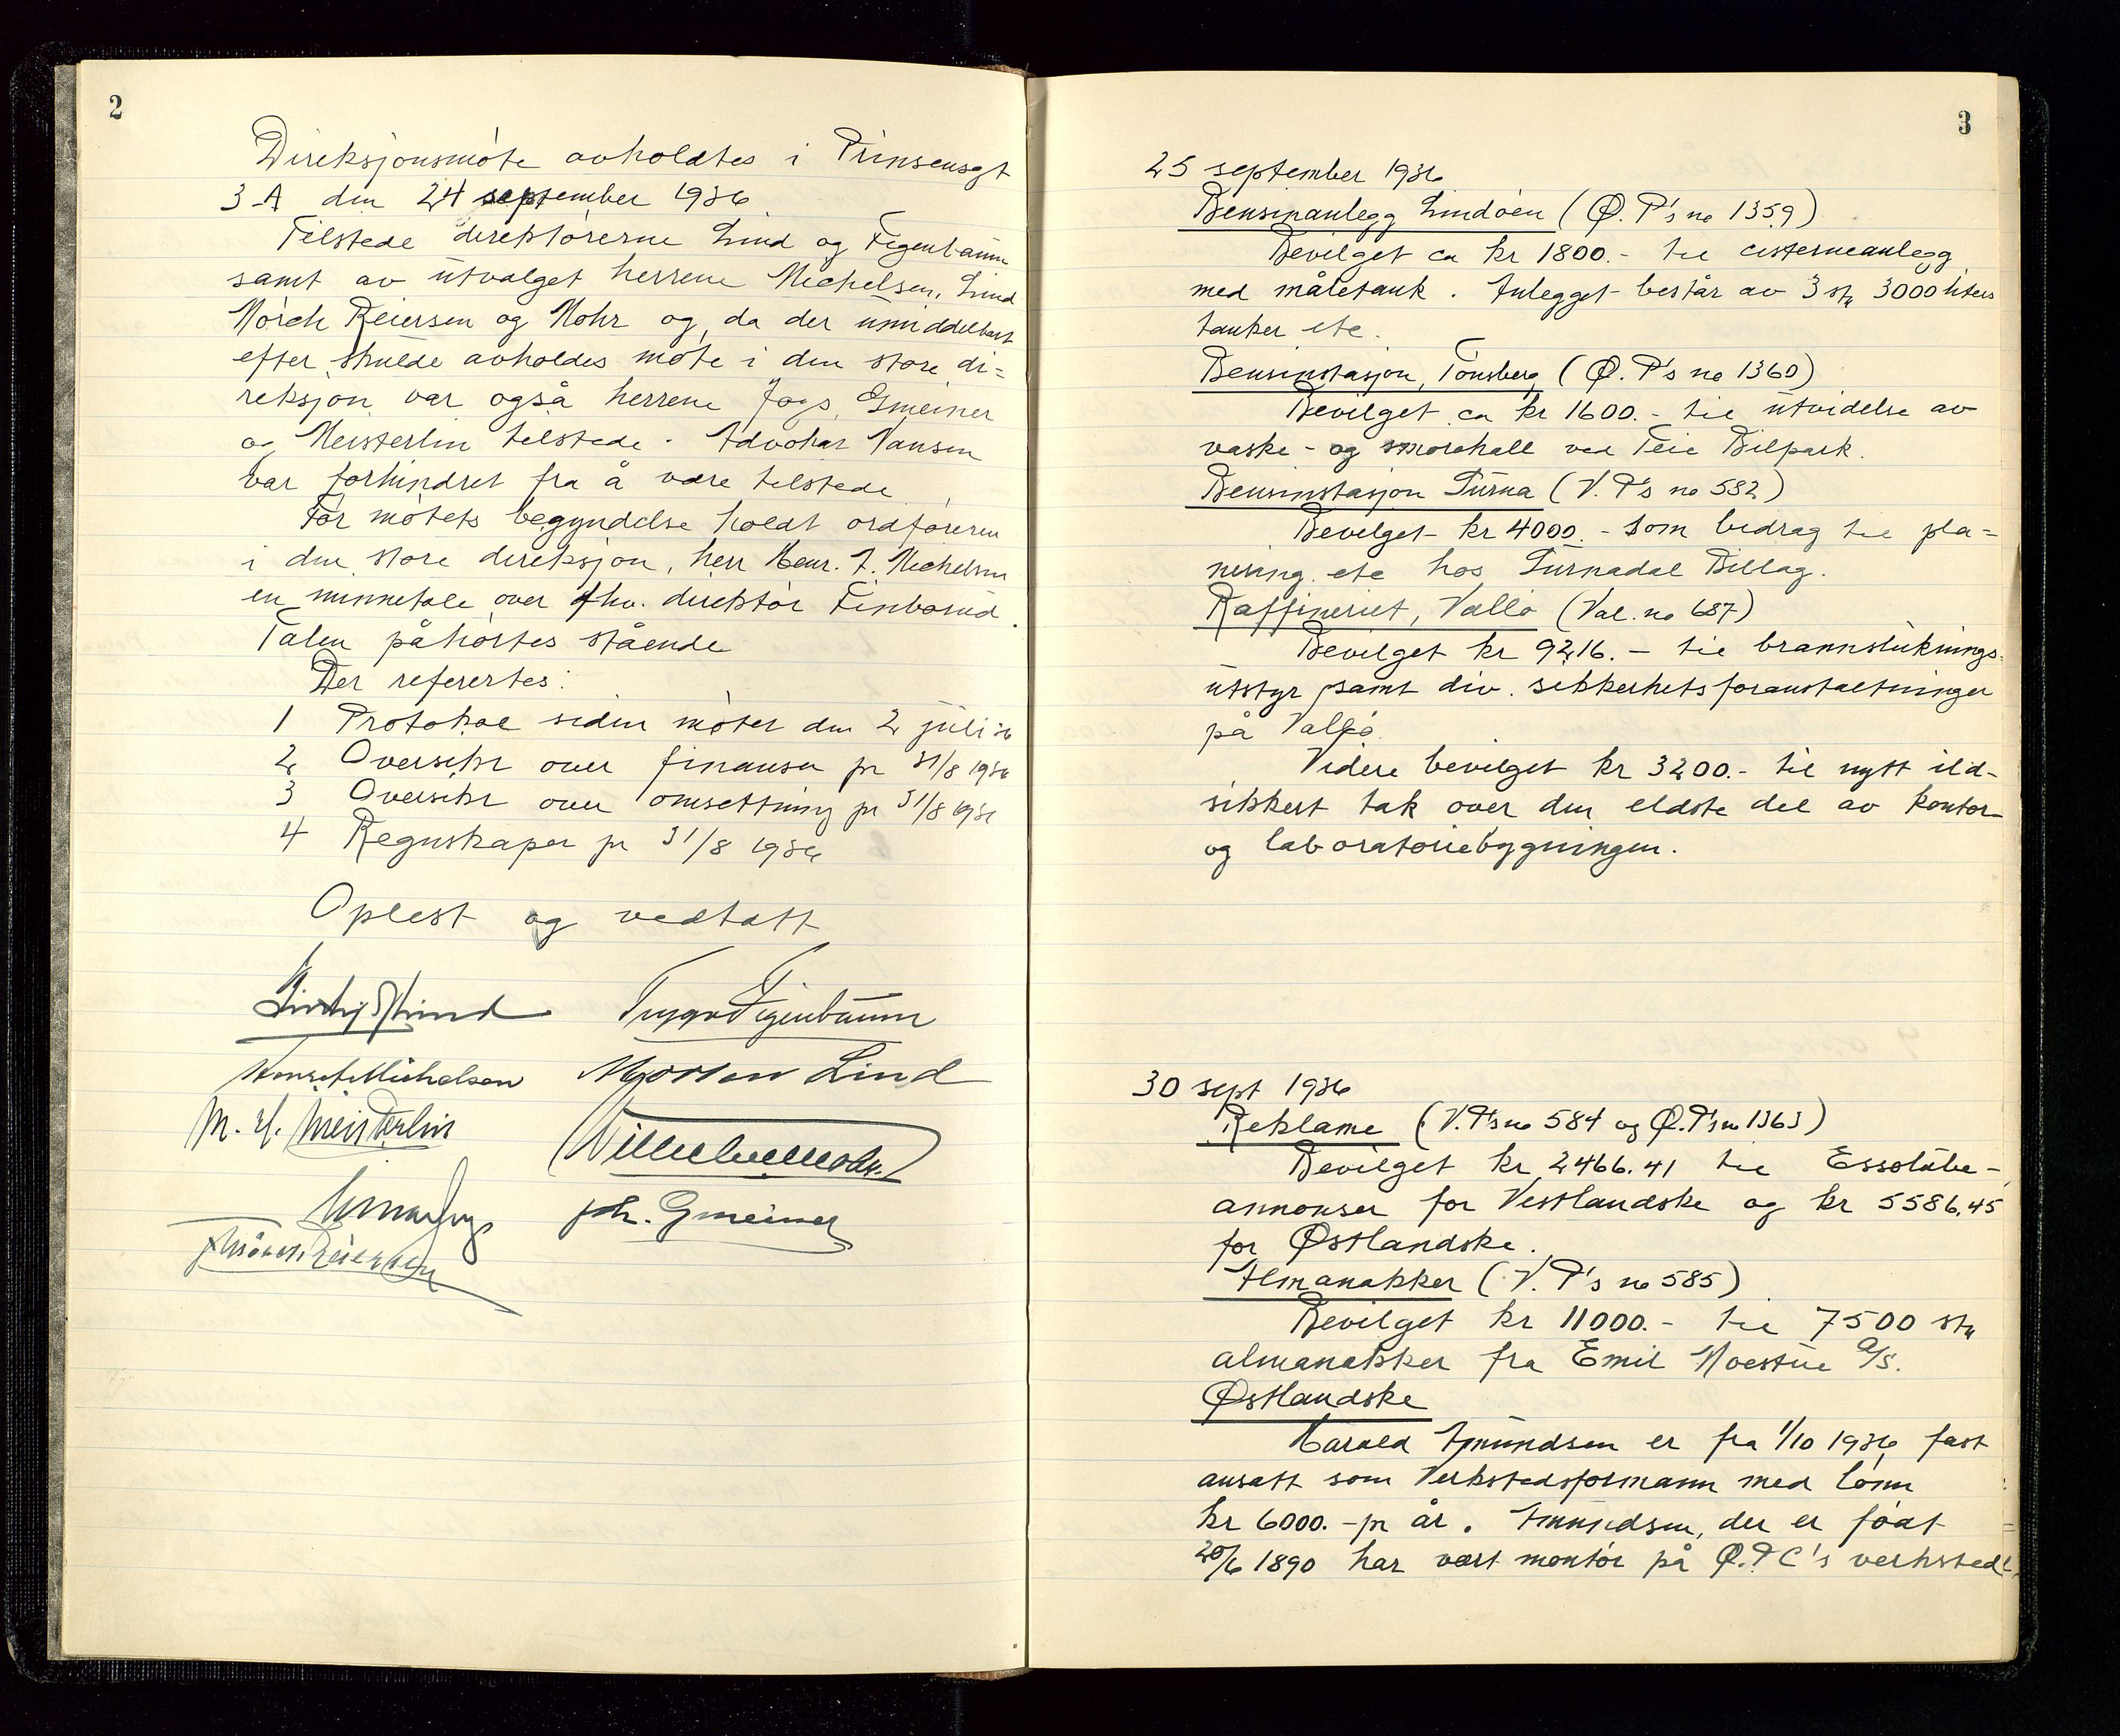 2
Direksjonsmöte avholdtes i Prinsensgt
3 A den 24 september 1936
Tilstede direktörerne Lind og Figenbaum
samt av utvalget herrene Michelsen, Lind
Mörch Reiersen og Mohr og, da der umiddelbart
efter skulde avholdes möte i den store di=
reksjon var også herrene Jays, Gmeiner
og Meisterlin tilstede. Advokat Nansen
var forhindret fra å være tilstede
För mötets begyndelse holdt ordföreren
i den store direksjon, herr Henr. A. Michelsen
en minnetale over fhv. direktör Finborud.
Talen påhörtes stående
Der refertes:
1 Protokol siden mötet den 2 juli 36
2 Oversikt over finanser pr 31/8 1936
3 Oversikt over omsettning pr 31/8 1936
4 Regnskaper pr 31/8 1936
Oplest og vedtatt
Lind Figenbaum
Michelsen Morten Lind
M. H. Meisterlin Wilhelm Mohr
Joh. Gmeiner
Mörch Reiersen
3
25 september 1936
Bensinanlegg Lindöen (Ø. P's no 1359)
Bevilget ca kr 1800.- til cisterneanlegg
med måletank. Anlegget består av 3 stk 3000 liters
tanker etc.
Bensinstasjon, Tönsberg (Ø. P's no 1360)
Bevilget ca kr 1600.- til utvidelse av
vaske- og smörehall ved Teie Bilpark.
Bensinstasjon Surna (V. P's no 582)
Bevilget kr 4000.- som bidrag til pla=
nering etc hos Surnadal Billag.
Raffineriet, Vallö (Val. no 687)
Bevilget kr 9216.- til brannsluknings-
utstyr samt div. sikkerhetsforanstaltninger
på Vallö.
Videre bevilget kr 3200.- til nytt ild-
sikkert tak over den eldste del av kontor-
og laboratoriebygningen.
30 sept 1936
Reklame (V. P's no 584 og Ø. P's no 1363)
Bevilget kr 2466.41 til Essolube-
annonser for Vestlandske og kr 5586,45
for Østlandske.
Almanakker (V. P's no 585)
Bevilget kr 11000.- til 7500 stk
almanakker fra Emil Moestue A/S.
Østlandske
Harald Amundsen er fra 1/10 1936 fast
ansatt som Verkstedsformann med lönn
kr 6000.- pr år. Amundsen, der er födt
20/6 1890 har vært montör på Ø.P.C's verksted